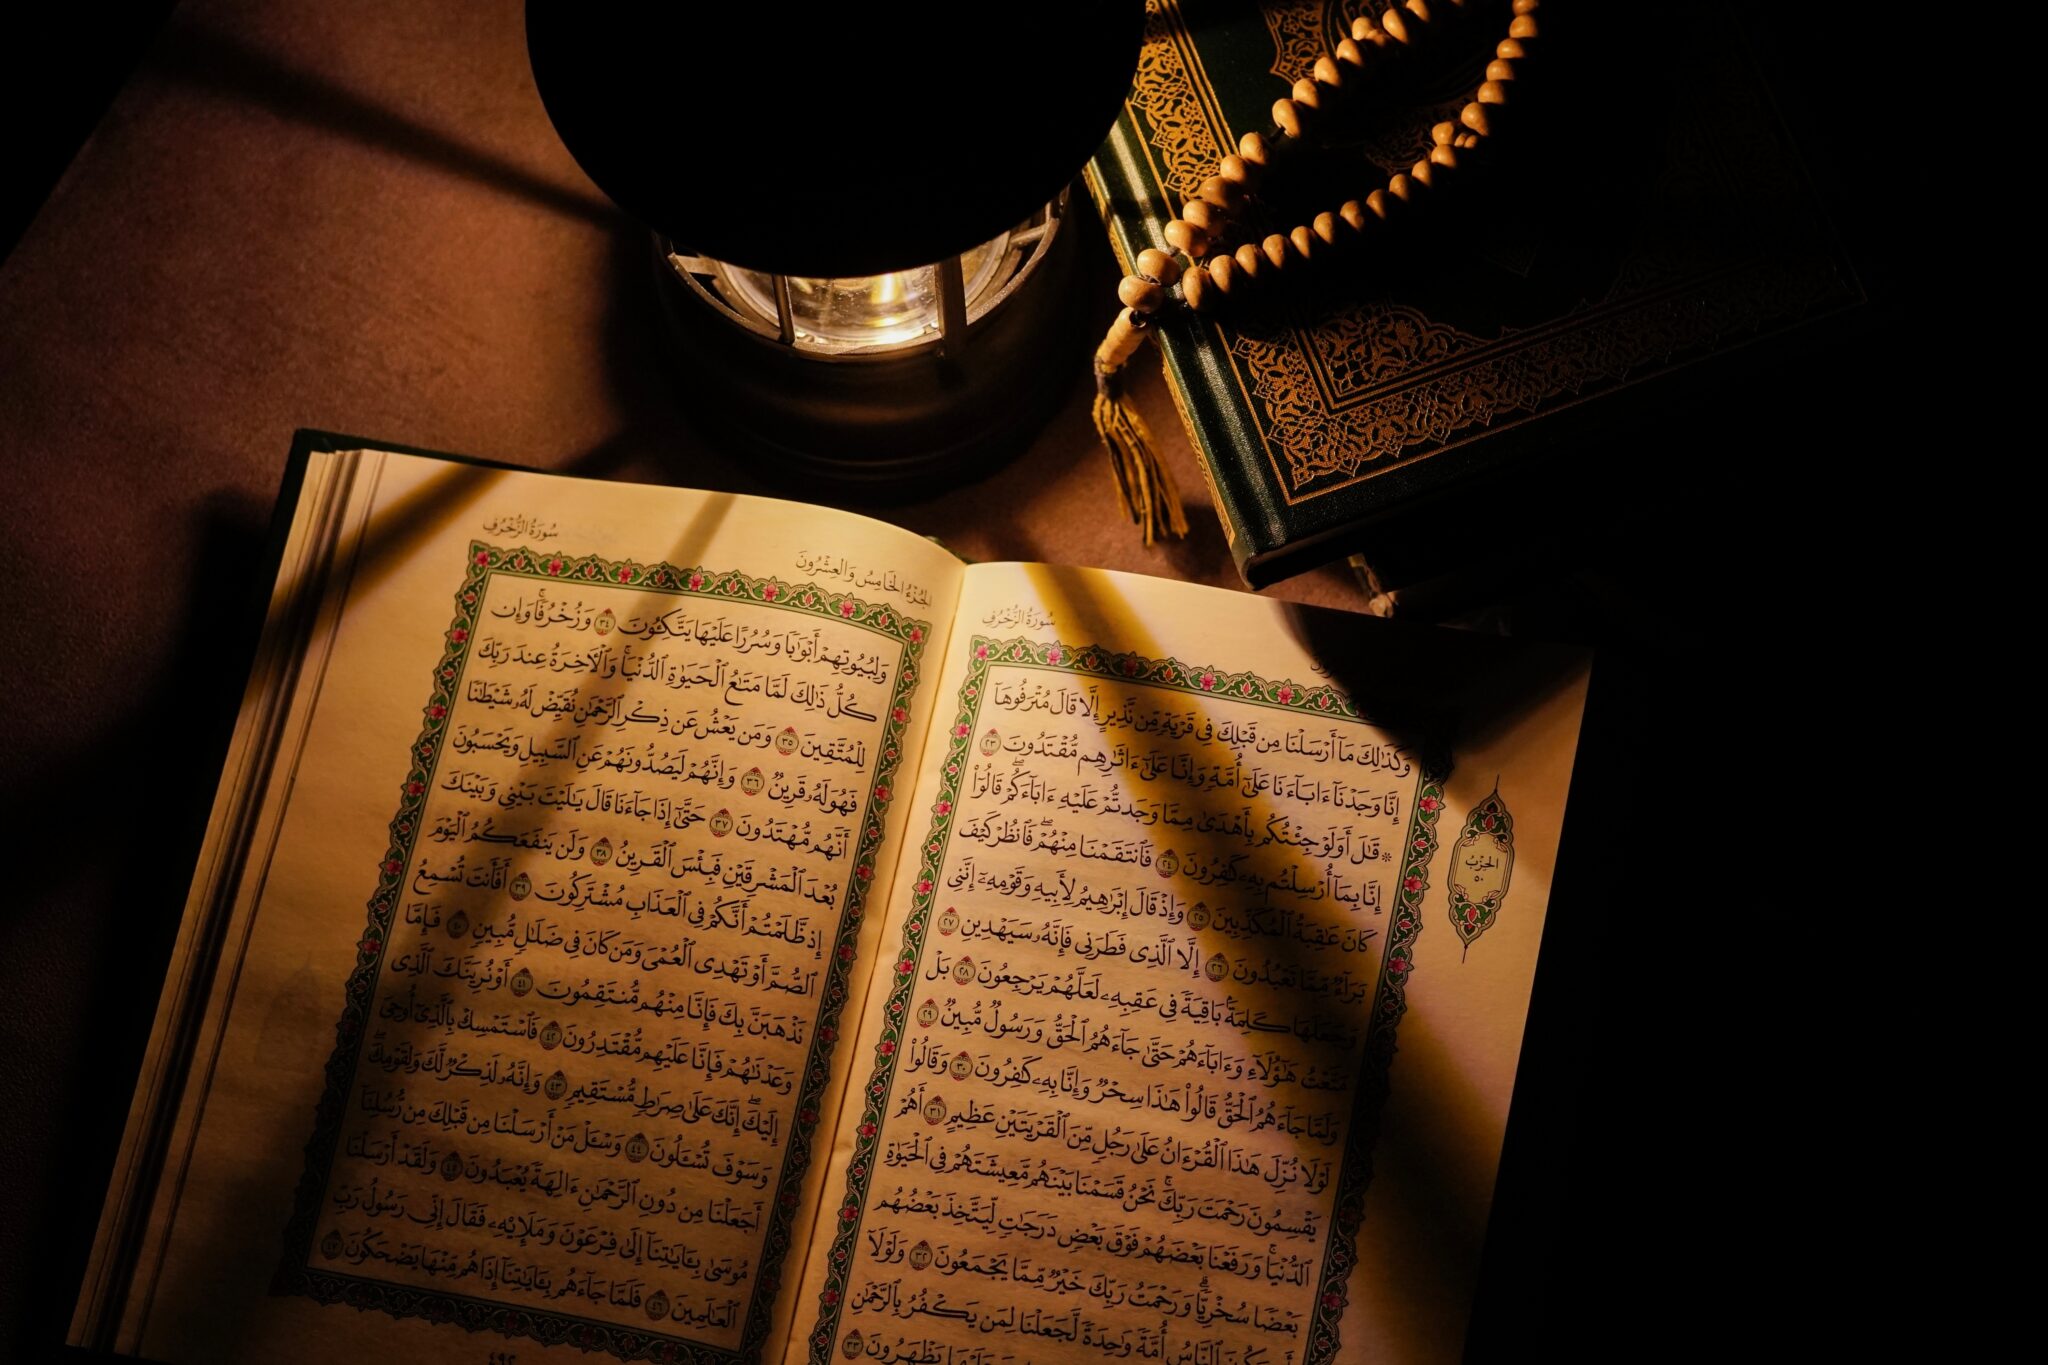 سُورَةُ الزُّخْرُفِ
وَكَذَٰلِكَ مَآ أَرْسَلْنَا مِن قَبْلِكَ فِى قَرْيَةٍ مِّن نَّذِيرٍ إِلَّا قَالَ مُتْرَفُوهَآ
إِنَّا وَجَدْنَآ ءَابَآءَنَا عَلَىٰٓ أُمَّةٍ وَإِنَّا عَلَىٰٓ ءَاثَـٰرِهِم مُّقْتَدُونَ ٢٣
۞ قَـٰلَ أَوَلَوْ جِئْتُكُم بِأَهْدَىٰ مِمَّا وَجَدتُّمْ عَلَيْهِ ءَابَآءَكُمْ ۖ قَالُوٓا۟
إِنَّا بِمَآ أُرْسِلْتُم بِهِۦ كَـٰفِرُونَ ٢٤ فَٱنتَقَمْنَا مِنْهُمْ ۖ فَٱنظُرْ كَيْفَ
كَانَ عَـٰقِبَةُ ٱلْمُكَذِّبِينَ ٢٥ وَإِذْ قَالَ إِبْرَٰهِيمُ لِأَبِيهِ وَقَوْمِهِۦٓ إِنَّنِى
بَرَآءٌ مِّمَّا تَعْبُدُونَ ٢٦ إِلَّا ٱلَّذِى فَطَرَنِى فَإِنَّهُۥ سَيَهْدِينِ ٢٧
وَجَعَلَهَا كَلِمَةًۢ بَاقِيَةً فِى عَقِبِهِۦ لَعَلَّهُمْ يَرْجِعُونَ ٢٨ بَلْ
مَتَّعْتُ هَـٰٓؤُلَآءِ وَءَابَآءَهُمْ حَتَّىٰ جَآءَهُمُ ٱلْحَقُّ وَرَسُولٌ مُّبِينٌ ٢٩
وَلَمَّا جَآءَهُمُ ٱلْحَقُّ قَالُوا۟ هَـٰذَا سِحْرٌ وَإِنَّا بِهِۦ كَـٰفِرُونَ ٣٠ وَقَالُوا۟
لَوْلَا نُزِّلَ هَـٰذَا ٱلْقُرْءَانُ عَلَىٰ رَجُلٍ مِّنَ ٱلْقَرْيَتَيْنِ عَظِيمٍ ٣١ أَهُمْ
يَقْسِمُونَ رَحْمَتَ رَبِّكَ ۚ نَحْنُ قَسَمْنَا بَيْنَهُم مَّعِيشَتَهُمْ فِى ٱلْحَيَوٰةِ
ٱلدُّنْيَا ۚ وَرَفَعْنَا بَعْضَهُمْ فَوْقَ بَعْضٍ دَرَجَـٰتٍ لِّيَتَّخِذَ بَعْضُهُم
بَعْضًا سُخْرِيًّا ۗ وَرَحْمَتُ رَبِّكَ خَيْرٌ مِّمَّا يَجْمَعُونَ ٣٢ وَلَوْلَآ
أَن يَكُونَ ٱلنَّاسُ أُمَّةً وَٰحِدَةً لَّجَعَلْنَا لِمَن يَكْفُرُ بِٱلرَّحْمَـٰنِ
يَظْهَرُونَ ٣٣
الحِزْبُ
٥٠
الجُزْءُ الخَامِسُ وَالعِشْرُونَ
سُورَةُ الزُّخْرُفِ
وَلِبُيُوتِهِمْ أَبْوَٰبًا وَسُرُرًا عَلَيْهَا يَتَّكِـُٔونَ ٣٤ وَزُخْرُفًا ۚ وَإِن
كُلُّ ذَٰلِكَ لَمَّا مَتَـٰعُ ٱلْحَيَوٰةِ ٱلدُّنْيَا ۚ وَٱلْـَٔاخِرَةُ عِندَ رَبِّكَ
لِلْمُتَّقِينَ ٣٥ وَمَن يَعْشُ عَن ذِكْرِ ٱلرَّحْمَـٰنِ نُقَيِّضْ لَهُۥ شَيْطَـٰنًا
فَهُوَ لَهُۥ قَرِينٌ ٣٦ وَإِنَّهُمْ لَيَصُدُّونَهُمْ عَنِ ٱلسَّبِيلِ وَيَحْسَبُونَ
أَنَّهُم مُّهْتَدُونَ ٣٧ حَتَّىٰٓ إِذَا جَآءَنَا قَالَ يَـٰلَيْتَ بَيْنِى وَبَيْنَكَ
بُعْدَ ٱلْمَشْرِقَيْنِ فَبِئْسَ ٱلْقَرِينُ ٣٨ وَلَن يَنفَعَكُمُ ٱلْيَوْمَ
إِذ ظَّلَمْتُمْ أَنَّكُمْ فِى ٱلْعَذَابِ مُشْتَرِكُونَ ٣٩ أَفَأَنتَ تُسْمِعُ
ٱلصُّمَّ أَوْ تَهْدِى ٱلْعُمْىَ وَمَن كَانَ فِى ضَلَـٰلٍ مُّبِينٍ ٤٠ فَإِمَّا
نَذْهَبَنَّ بِكَ فَإِنَّا مِنْهُم مُّنتَقِمُونَ ٤١ أَوْ نُرِيَنَّكَ ٱلَّذِى
وَعَدْنَـٰهُمْ فَإِنَّا عَلَيْهِم مُّقْتَدِرُونَ ٤٢ فَٱسْتَمْسِكْ بِٱلَّذِىٓ أُوحِىَ
إِلَيْكَ ۖ إِنَّكَ عَلَىٰ صِرَٰطٍ مُّسْتَقِيمٍ ٤٣ وَإِنَّهُۥ لَذِكْرٌ لَّكَ وَلِقَوْمِكَ ۖ
وَسَوْفَ تُسْـَٔلُونَ ٤٤ وَسْـَٔلْ مَنْ أَرْسَلْنَا مِن قَبْلِكَ مِن رُّسُلِنَآ
أَجَعَلْنَا مِن دُونِ ٱلرَّحْمَـٰنِ ءَالِهَةً يُعْبَدُونَ ٤٥ وَلَقَدْ أَرْسَلْنَا
مُوسَىٰ بِـَٔايَـٰتِنَآ إِلَىٰ فِرْعَوْنَ وَمَلَإِي۟هِۦ فَقَالَ إِنِّى رَسُولُ رَبِّ
ٱلْعَـٰلَمِينَ ٤٦ فَلَمَّا جَآءَهُم بِـَٔايَـٰتِنَآ إِذَا هُم مِّنْهَا يَضْحَكُونَ ٤٧
٤٩٢